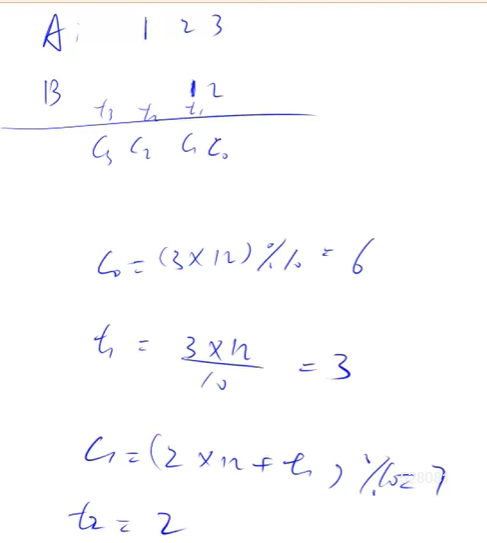 A: 1 2 3
B 12
t₃ t₂ t₁
C₃ C₂ C₁ C₀
C₀ = (3×12)%10 = 6
t₁ = 3×12/10 = 3
C₁ = (2×12+t₁)%10=7
t₂ = 2